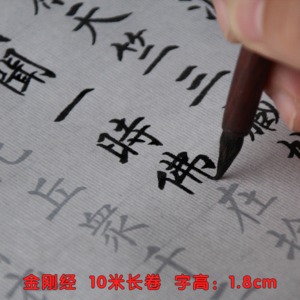 天竺三藏
聞一時佛在
丘眾千
金刚经 10米长卷 字高：1.8cm